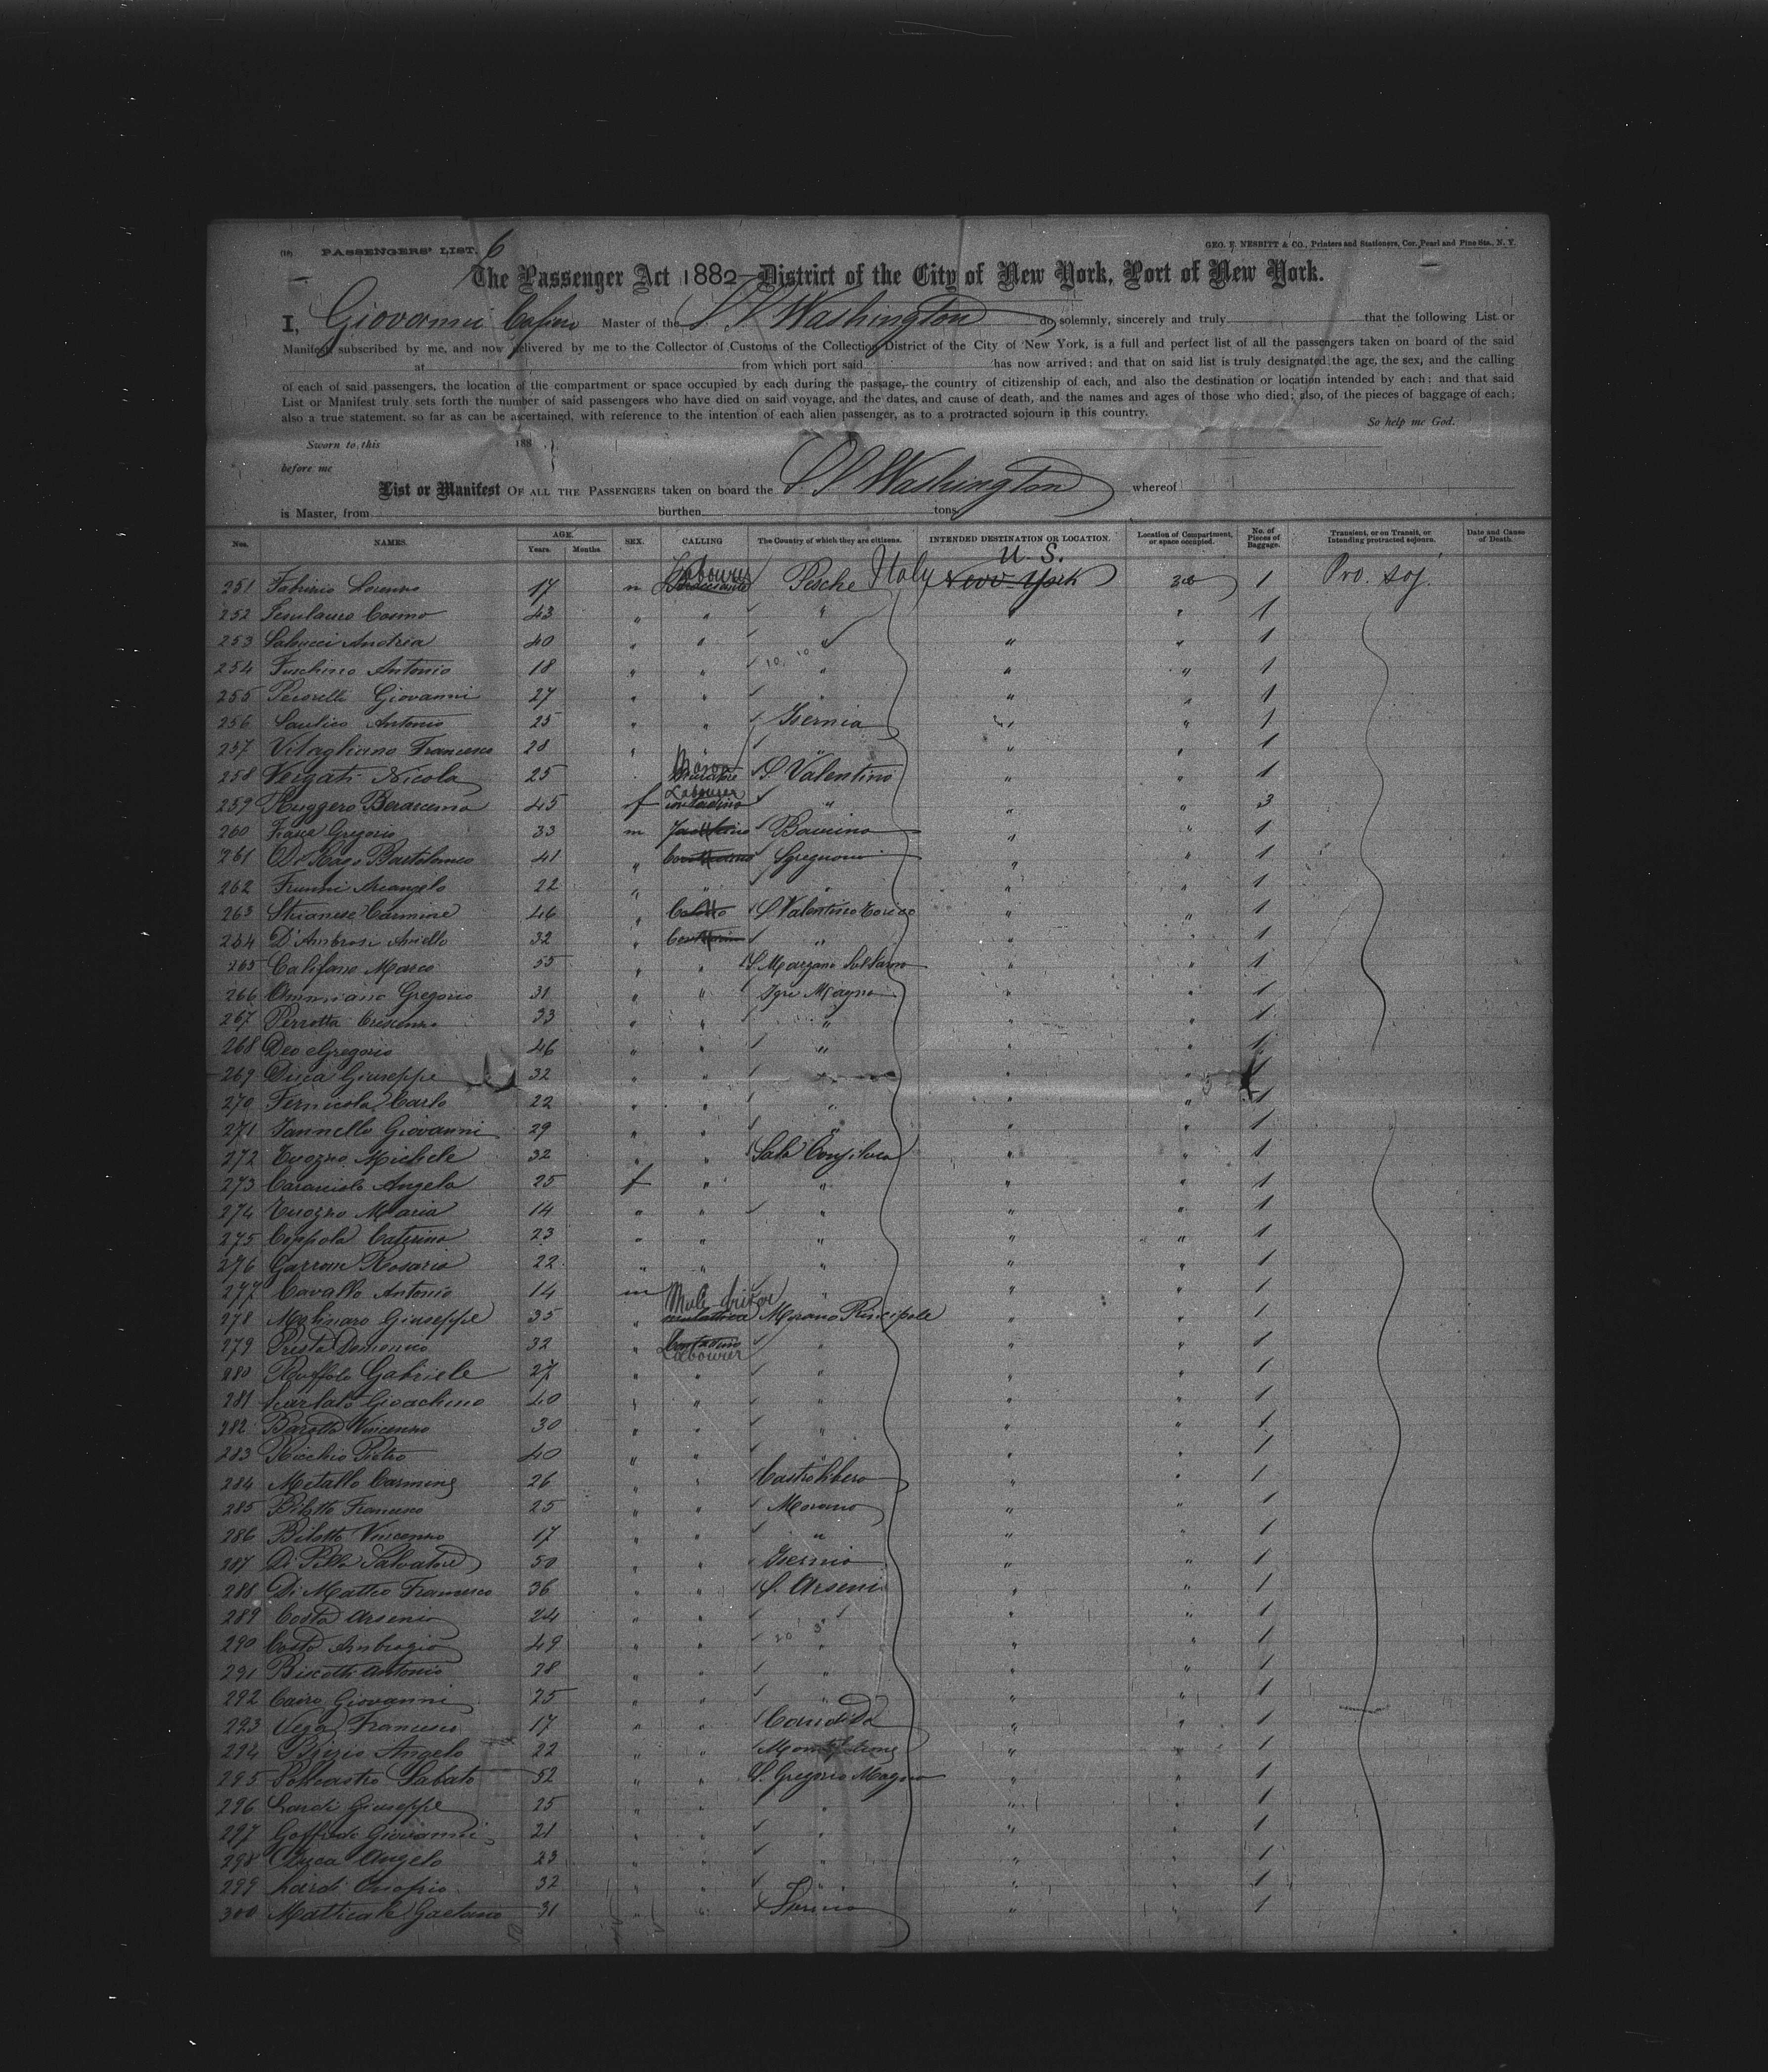 (18) PASSENGERS' LIST. 6
GEO. F. NESBITT & CO., Printers and Stationers, Cor. Pearl and Pine Sts., N. Y.
The Passenger Act 1882—District of the City of New York, Port of New York.
I, Giovanni Master of the S. S. Washington do, solemnly, sincerely and truly that the following List or
Manifest subscribed by me, and now delivered by me to the Collector of Customs of the Collection District of the City of New York, is a full and perfect list of all the passengers taken on board of the said
at from which port said has now arrived; and that on said list is truly designated the age, the sex, and the calling
of each of said passengers, the location of the compartment or space occupied by each during the passage, the country of citizenship of each, and also the destination or location intended by each; and that said
List or Manifest truly sets forth the number of said passengers who have died on said voyage, and the dates, and cause of death, and the names and ages of those who died; also, of the pieces of baggage of each;
also a true statement, so far as can be ascertained, with reference to the intention of each alien passenger, as to a protracted sojourn in this country.
So help me God.
Sworn to this 188
before me
List or Manifest OF ALL THE PASSENGERS taken on board the S. S. Washington whereof
is Master, from burthen tons.
Nos. NAMES. AGE. Years. Months. SEX. CALLING The Country of which they are citizens. INTENDED DESTINATION OR LOCATION. Location of Compartment, or space occupied. No. of Pieces of Baggage. Transient, or on Transit, or Intending protracted sojourn. Date and Cause of Death.
U. S.
251 Fabrizio Lorenzo 17 m Labourer Pesche Italy New York 1 Pro. soj.
252 Cosmo 43 " " " " " 1
253 Andrea 40 " " " " " 1
254 Fuschino Antonio 18 " " " " " 1
255 Giovanni 27 " " " " " 1
256 Antonio 25 " " Isernia " " 1
257 Vitagliano Francesco 28 " " " " " 1
258 Nicola 25 Mason S. Valentino " " 1
259 Ruggero 45 f Labourer contadina " " " 3
260 Gregorio 33 m " " 1
261 Bartolomeo 41 " " " 1
262 Arcangelo 22 " " " " " 1
263 Strianese Carmine 46 " S. Valentino Torino " " 1
264 D'Ambrosi Aniello 32 " " " " 1
265 Califano Marco 55 " " S. Marzano " " 1
266 Gregorio 31 " " " " 1
267 Perrotta 33 " " " " " 1
268 Deo Gregorio 46 " " " " " 1
269 Duca Giuseppe 32 " " " " " 1
270 Fernicola Carlo 22 " " " " " 1
271 Iannello Giovanni 29 " " " " " 1
272 Michele 32 " " Sala " " 1
273 Caracciolo Angela 25 f " " " " 1
274 Maria 14 " " " " " 1
275 Coppola Caterina 23 " " " " " 1
276 Rosaria 22 " " " " " 1
277 Cavallo Antonio 14 m " " " 1
278 Molinaro Giuseppe 35 " Mule driver Marano Principale " " 1
279 Presta Domenico 32 " Contadino Labourer " " " 1
280 Ruffolo Gabriele 27 " " " " " 1
281 Gioachino 40 " " " " " 1
282 Vincenzo 30 " " " " " 1
283 Ricchio Pietro 40 " " " " " 1
284 Metallo Carmine 26 " " Castrolibero " " 1
285 Bilotto Francesco 25 " " Marano " " 1
286 Bilotto Vincenzo 17 " " " " " 1
287 Di Salvatore 50 " " Isernia " " 1
288 Di Matteo Francesco 36 " " S. Arsenio " " 1
289 Costa Arsenio 24 " " " " " 1
290 Costa Ambrogio 49 " " " " " 1
291 Biscotti Antonio 28 " " " " " 1
292 Cairo Giovanni 25 " " " " " 1
293 Vega Francesco 17 " " Candida " " 1
294 Angelo 22 " " " " 1
295 Policastro Sabato 52 " " S. Gregorio Magno " " 1
296 Lardi Giuseppe 25 " " " " " 1
297 Goffredo Giovanni 21 " " " " " 1
298 Duca Angelo 23 " " " " " 1
299 Lardi Onofrio 32 " " " " " 1
300 Gaetano 31 " " " " 1